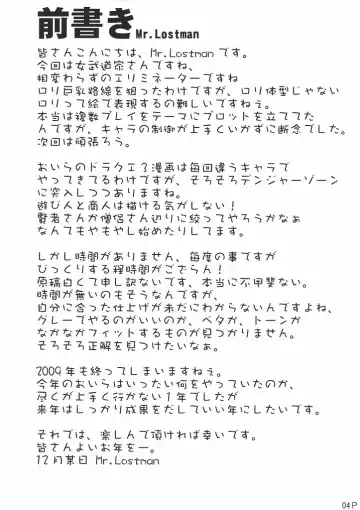 前書き Mr.Lostman
皆さんこんにちは、Mr.Lostmanです。
今回は女武道家さんですね、
相変わらずのエリミネーターですね
ロリ巨乳路線を狙ったわけですが、ロリ体型じゃない
ロリって絵で表現するの難しいですねぇ。
本当は複数プレイをテーマにプロットを立ててた
んですが、キャラの制御が上手くいかずに断念でした。
次回は頑張ろう。
おいらのドラクエ?漫画は毎回違うキャラで
やってきてるわけですが、そろそろデンジャーゾーン
に突入しつつありますね。
遊び人と商人は描ける気がしない!
賢者さんか僧侶さん辺りに絞ってやろうかなぁ
なんてもやもやし始めたりしてます。
しかし時間がありません、毎度の事ですが
びっくりする程時間がござらん!
原稿白くて申し訳ないです、本当に不甲斐ない。
時間が無いのもそうなんですが、
自分に合った仕上げが未だにわからないんですよね、
グレーでやるのがいいのか、ベタか、トーンか
なかなかフィットするものが見つかりません。
そろそろ正解を見つけたいなぁ。
2009年も終ってしまいますねぇ。
今年のおいらはいったい何をやっていたのか、
尽くが上手く行かない1年でしたが
来年はしっかり成果をだしていい年にしたいです。
それでは、楽しんで頂ければ幸いです。
皆さんよいお年を―。
12月某日 Mr.Lostman
04P